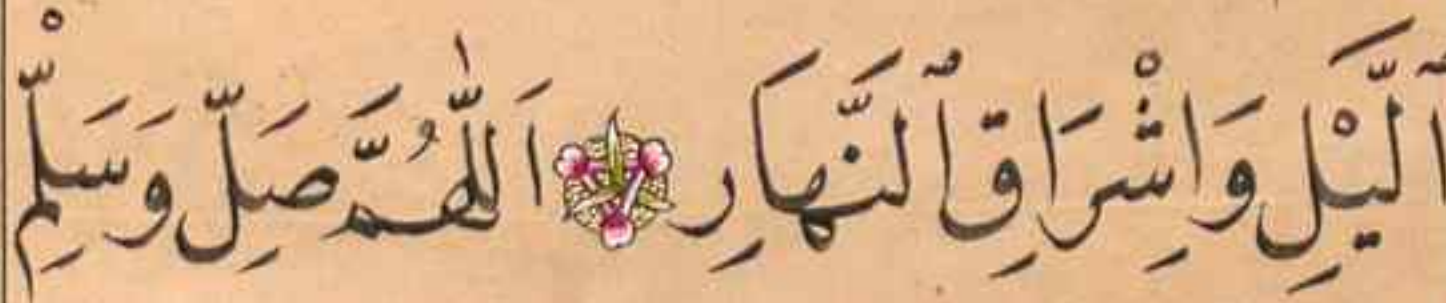 ٱلَّيْلِ وَاِشْرَاقِ ٱلنَّهَارِ اَللّٰهُمَّ صَلِّ وَسَلِّمْ